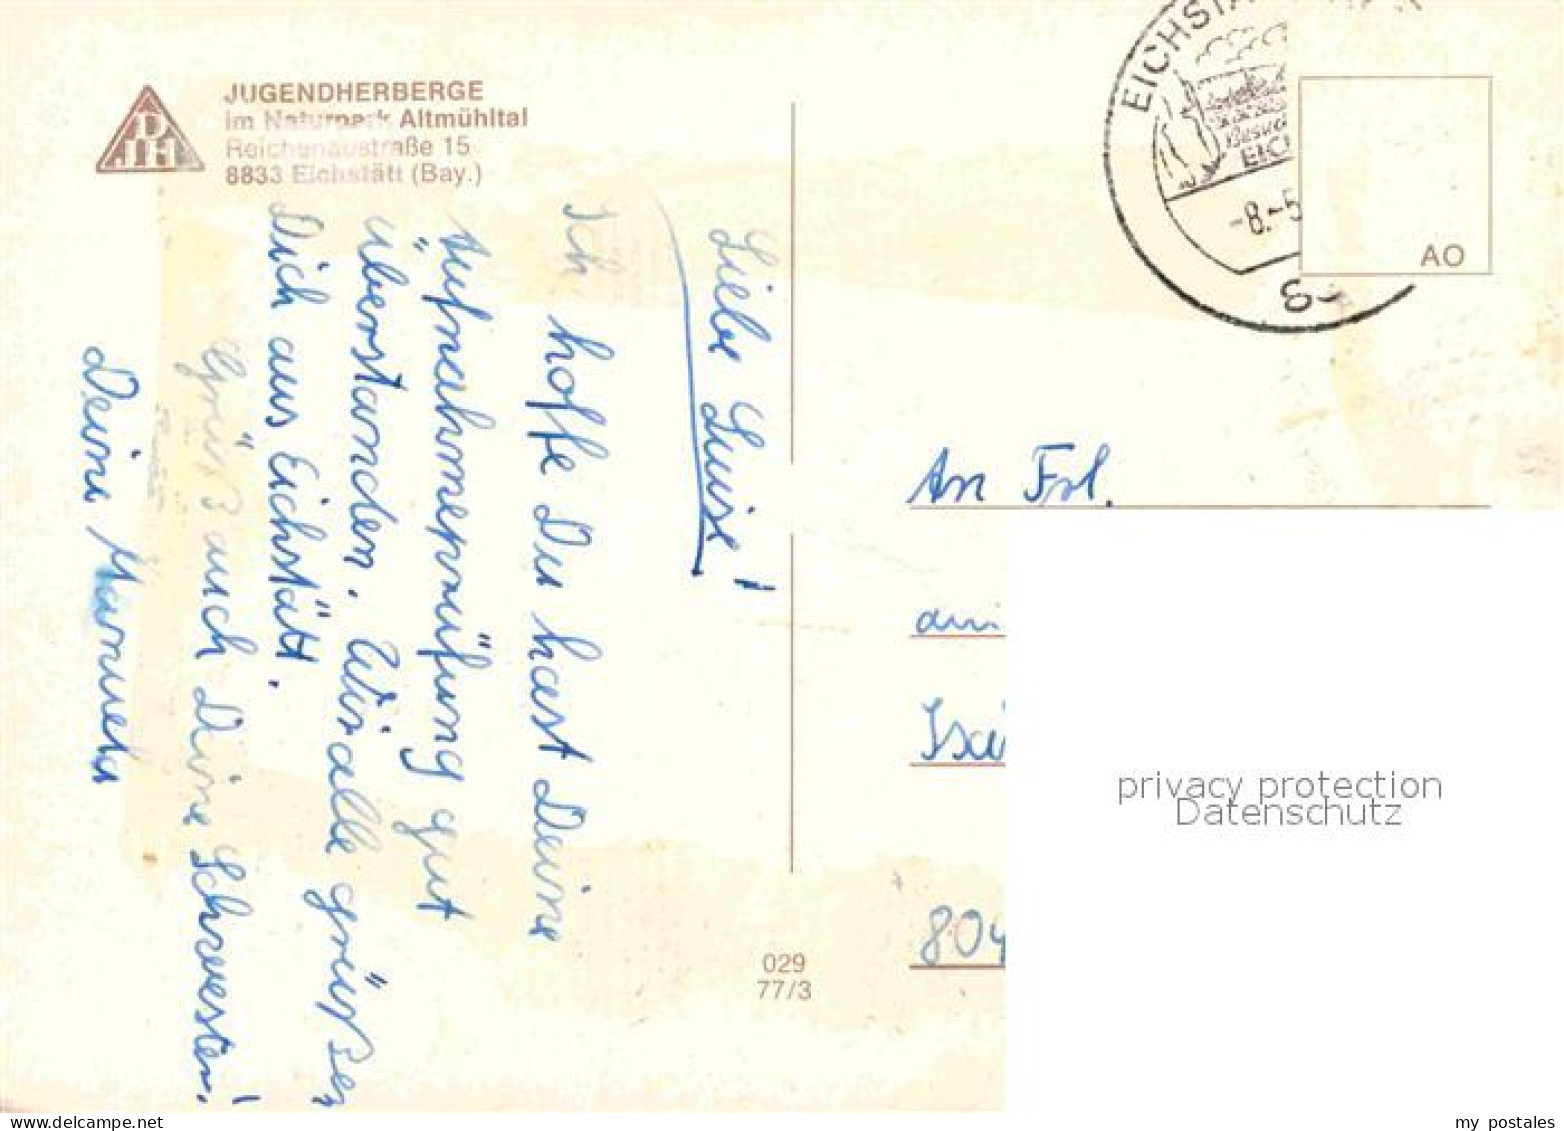 JUGENDHERBERGE
im Naturpark Altmühltal
Reichenaustraße 15
8833 Eichstätt (Bay.)
DJH
Liebe Luise!
Ich hoffe Du hast Deine
Aufnahmeprüfung gut
überstanden. Wir alle grüßen
Dich aus Eichstätt.
Grüß auch Deine Schwester!
Deine Manuela
029
77/3
EICHSTÄ
EICH
-8.-5
AO
An Frl.
804
privacy protection
Datenschutz
my postales